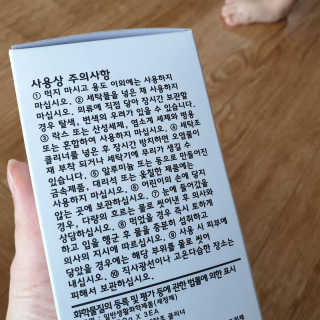 사용상 주의사항
① 먹지 마시고 용도 이외에는 사용하지
마십시오. ② 세탁물을 넣은 채 사용하지
마십시오. 의류에 직접 닿아 장시간 보관할
경우 탈색, 변색의 우려가 있을 수 있습니다.
③ 락스 또는 산성세제, 염소계 세제와 병용
또는 혼합하여 사용하지 마십시오. ④ 세탁조
클리너를 넣은 후 장시간 방치하면 오염물이
재 부착 되거나 세탁기에 무리가 생길 수
있습니다. ⑤ 알루미늄 또는 동으로 만들어진
금속제품, 대리석 또는 옻칠한 제품에는
사용하지 마십시오. ⑥ 어린이의 손에 닿지
않는 곳에 보관하십시오. ⑦ 눈에 들어갔을
경우, 다량의 흐르는 물로 씻어낸 후 의사와
상담하십시오. ⑧ 먹었을 경우 즉시 토하게
하고 입을 헹군 후 물을 충분히 섭취하고
의사의 지시에 따르십시오. ⑨ 사용 시 피부에
닿았을 경우에는 해당 부위를 물로 씻어
내십시오. ⑩ 직사광선이나 고온다습한 장소는
피해서 보관하십시오.
화학물질의 등록 및 평가 등에 관한 법률에 의한 표시
일반생활화학제품(세정제)
X 3EA
클리너